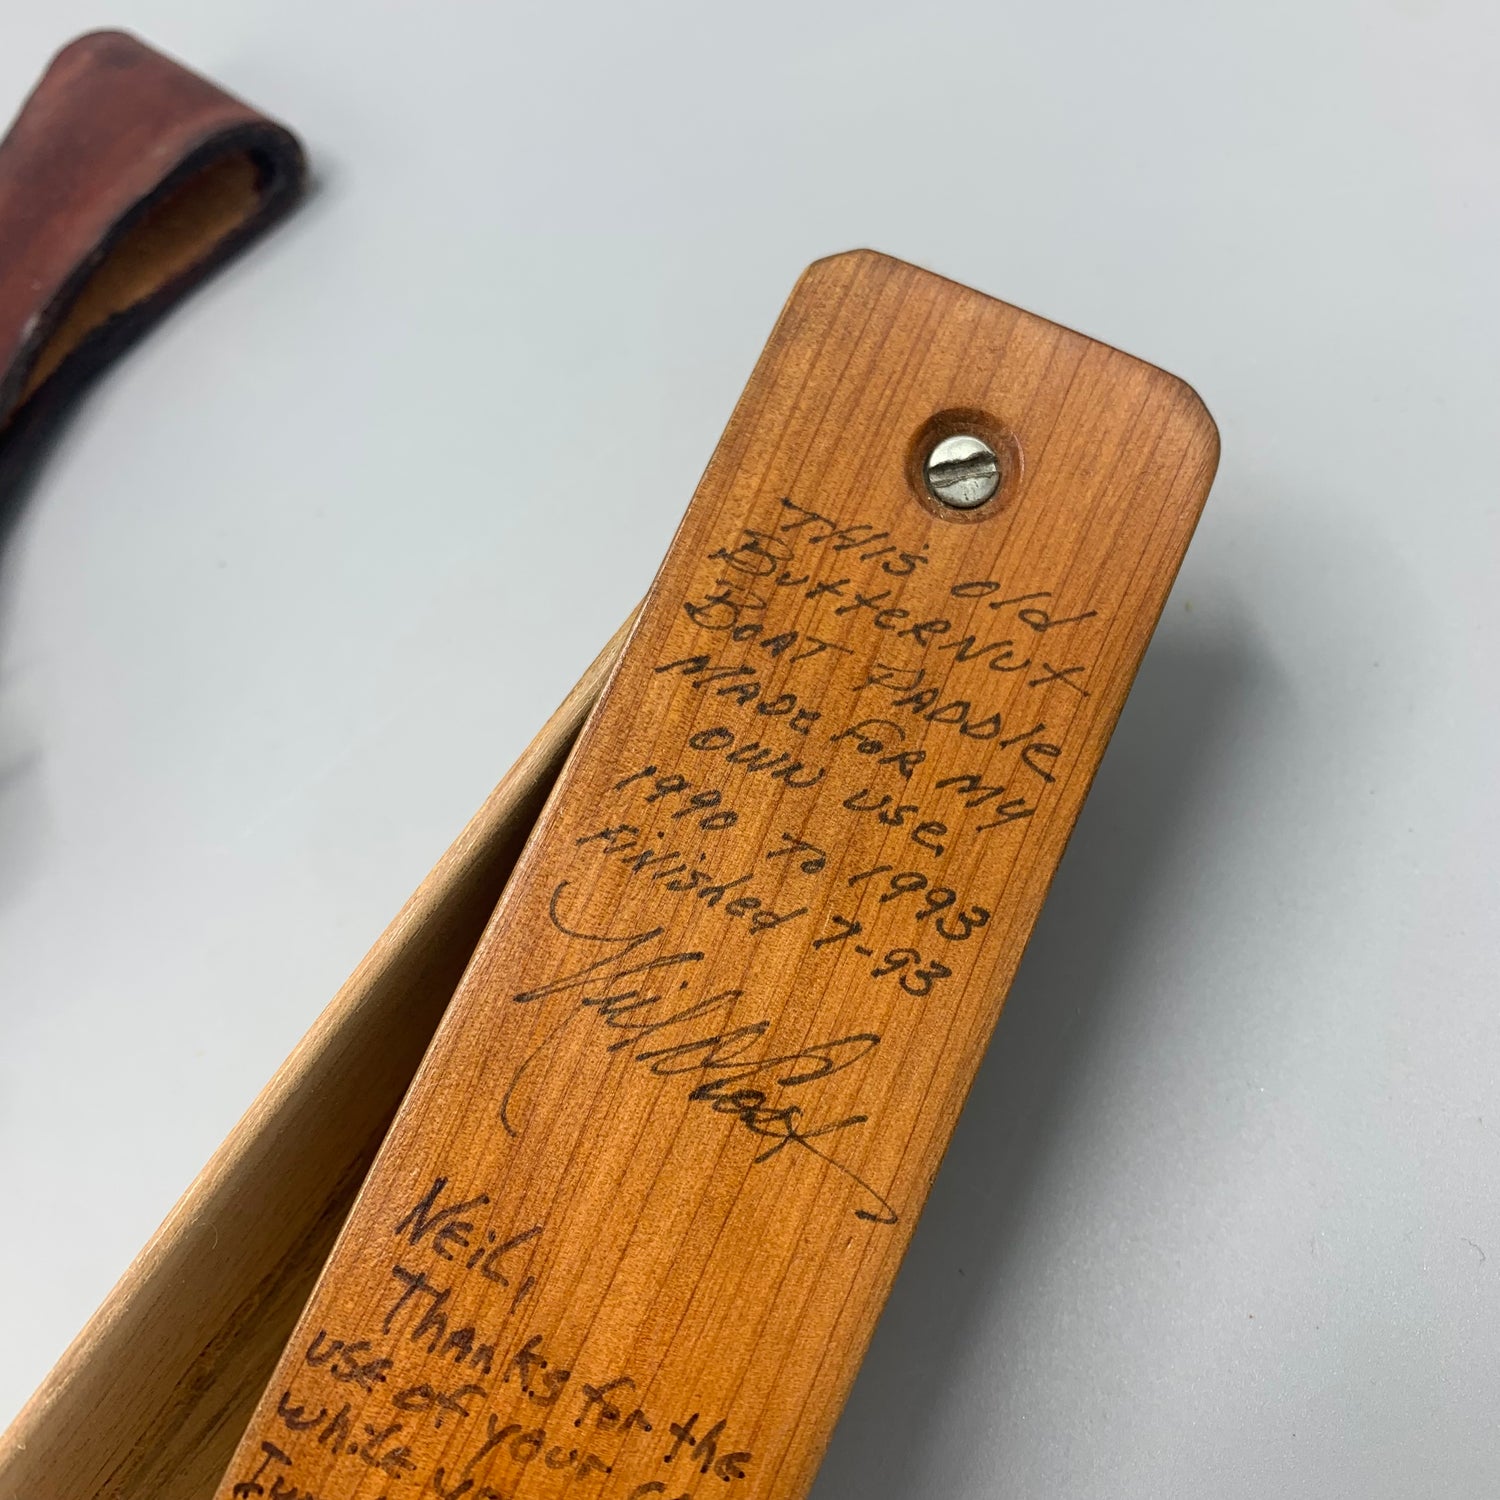 THis old
ButterNut
BOAT PADDlE
MADE FOR MY
OWN USE.
1990 TO 1993
FiNished 7-93
Neil Cost
NEiL,
Thanks for the
use of your
while